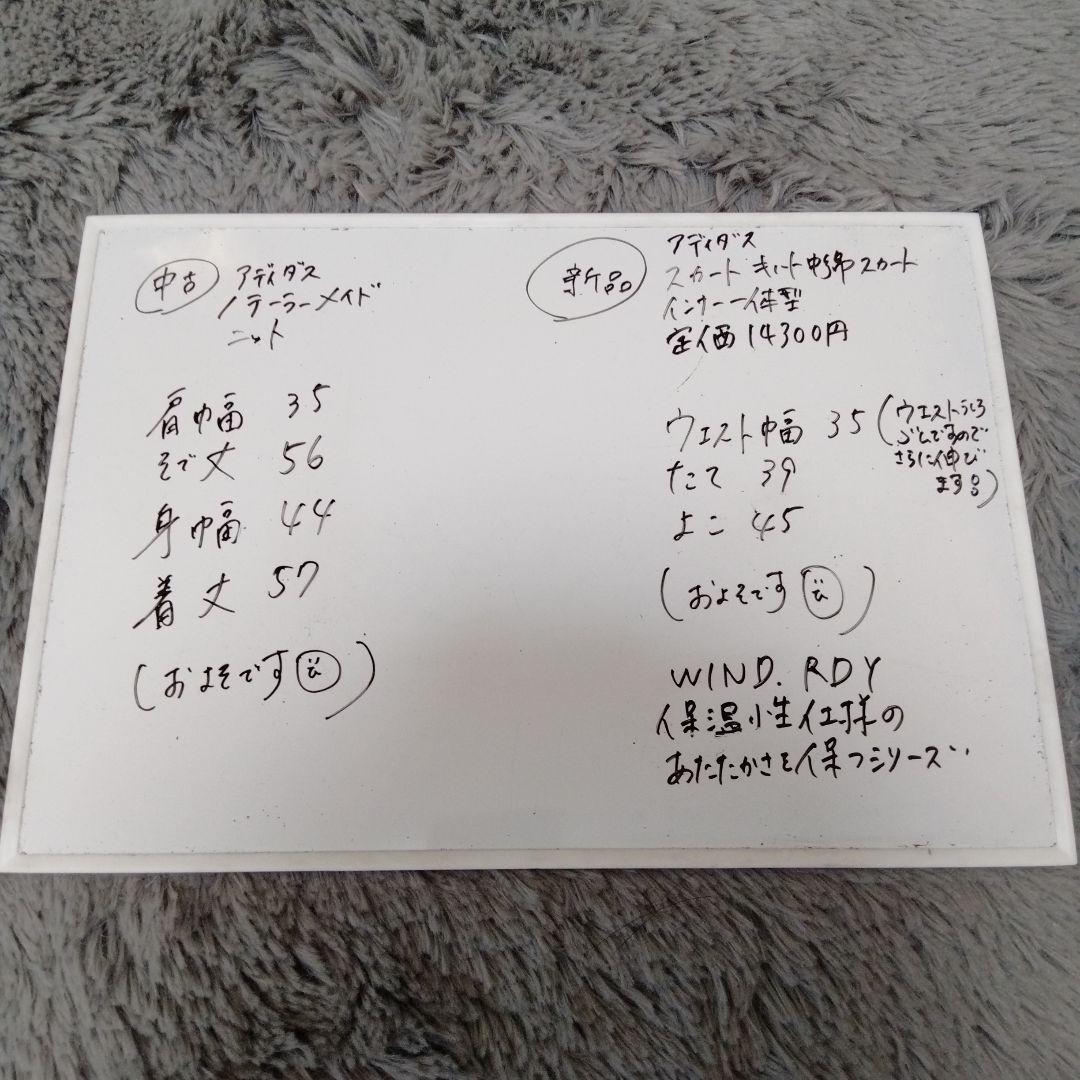 中古
アディダス
/テーラーメイド
ニット
肩幅 35
そで丈 56
身幅 44
着丈 57
(およそです)
新品
アディダス
スカート キルト中綿スカート
インナー一体型
定価14300円
ウエスト幅 35
(ウエストうしろ
ゴムですので
さらに伸び
ます。)
たて 39
よこ 45
(およそです)
WIND. RDY
保温性仕様の
あたたかさを保つシリーズ